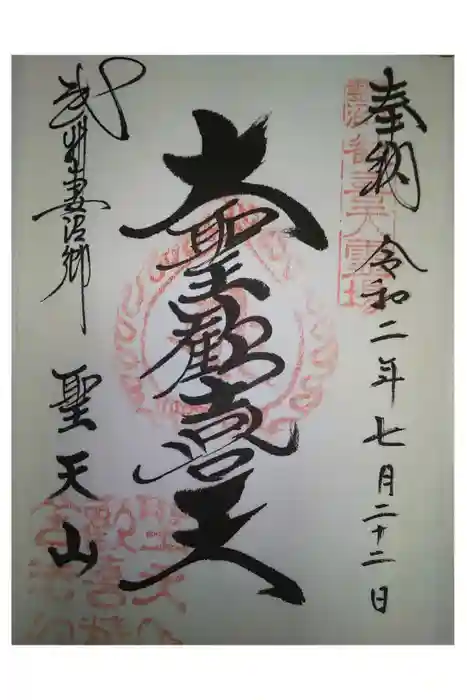 奉納 令和二年七月二十二日
大聖歓喜天
武州妻沼郷 聖天山